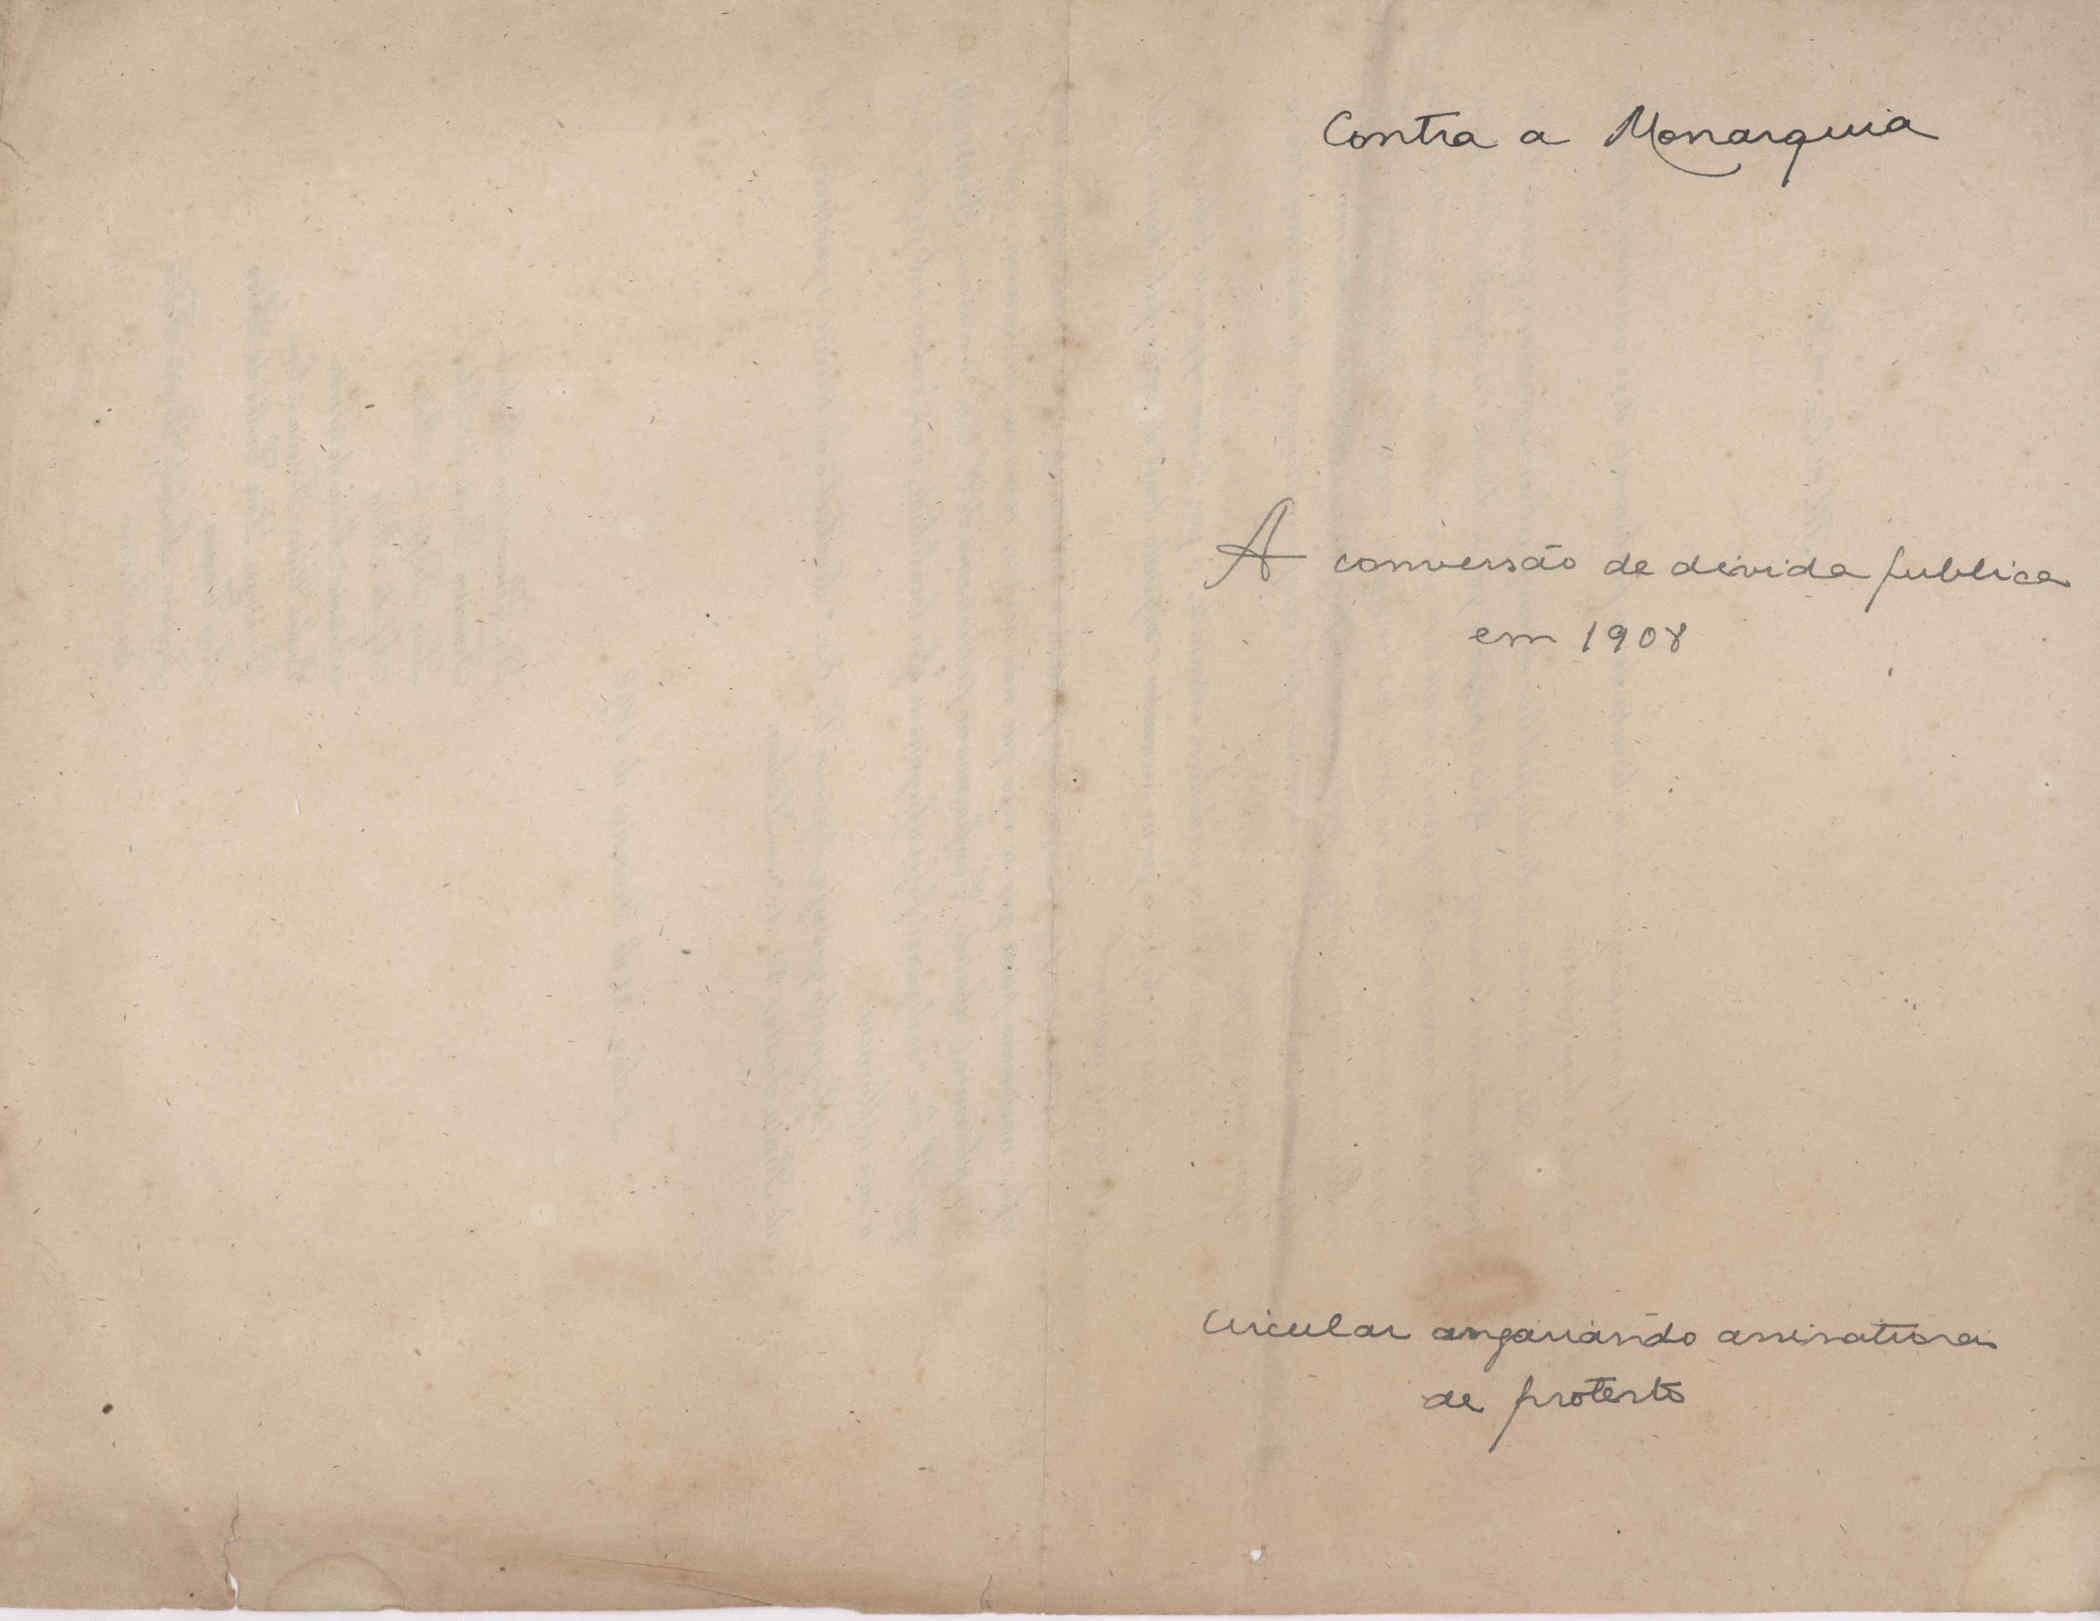 Contra a Monarquia
A conversão de divida publica
em 1908
Circular angariando assinaturas
de protesto